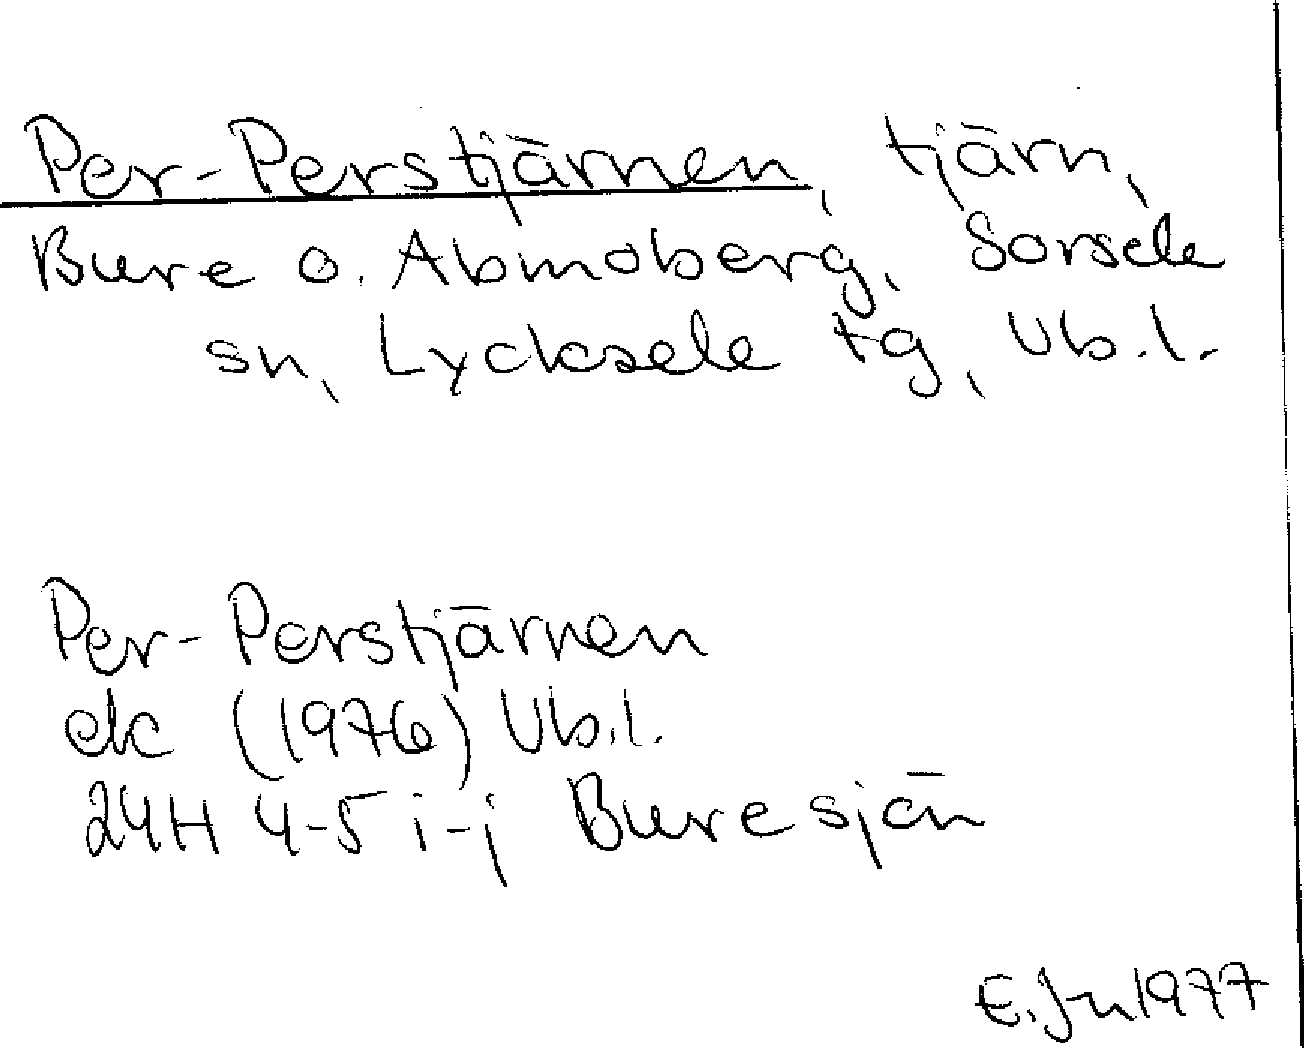 Per-Perstjärnen, tjärn,
Bure o. Abmoberg, Sorsele
sn, Lycksele tg, Vb.l.
Per-Perstjärnen
ek (1976) Vb.l.
24H 4-5 i-j Buresjön
E. Jn 1977